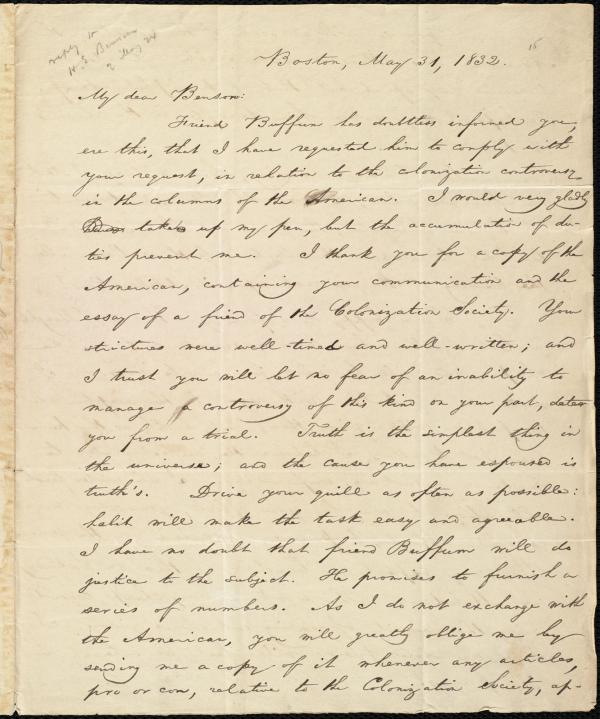 reply to
H. E. Benson
Boston, May 31, 1832.
My dear Benson:
Friend Buffum has doubtless informed you,
ere this, that I have requested him to comply with
your request, in relation to the colonization controversy
in the columns of the American. I would very gladly
take up my pen, but the accumulation of du-
ties prevent me. I thank you for a copy of the
American, containing your communication and the
essay of a friend of the Colonization Society. Your
strictures were well-timed and well-written; and
I trust you will let no fear of an inability to
manage a controversy of this kind on your part, deter
you from a trial. Truth is the simplest thing in
the universe; and the cause you have espoused is
truth's. Drive your quill as often as possible:
habit will make the task easy and agreeable.
I have no doubt that friend Buffum will do
justice to the subject. He promises to furnish a
series of numbers. As I do not exchange with
the American, you will greatly oblige me by
sending me a copy of it whenever any articles,
pro or con, relative to the Colonization Society, ap-